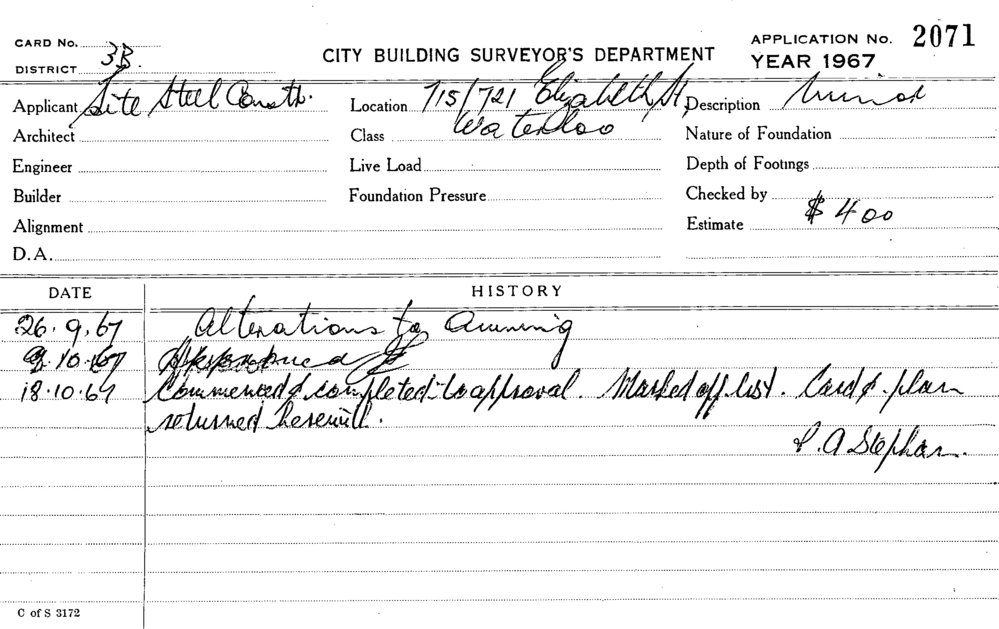 CARD No.
DISTRICT 3B.
CITY BUILDING SURVEYOR'S DEPARTMENT
APPLICATION No. 2071
YEAR 1967
Applicant Lite Steel Constn. Location 715/721 Elizabeth St, Description Minor
Architect Class Waterloo Nature of Foundation
Engineer Live Load Depth of Footings
Builder Foundation Pressure Checked by
Alignment Estimate $400
D.A.
DATE HISTORY
26.9.67 Alterations to Awning
9.10.67 Approved
18.10.67 Commenced & completed to approval. Marked off list. Card & plan
returned herewith.
A Stephan.
C of S 3172